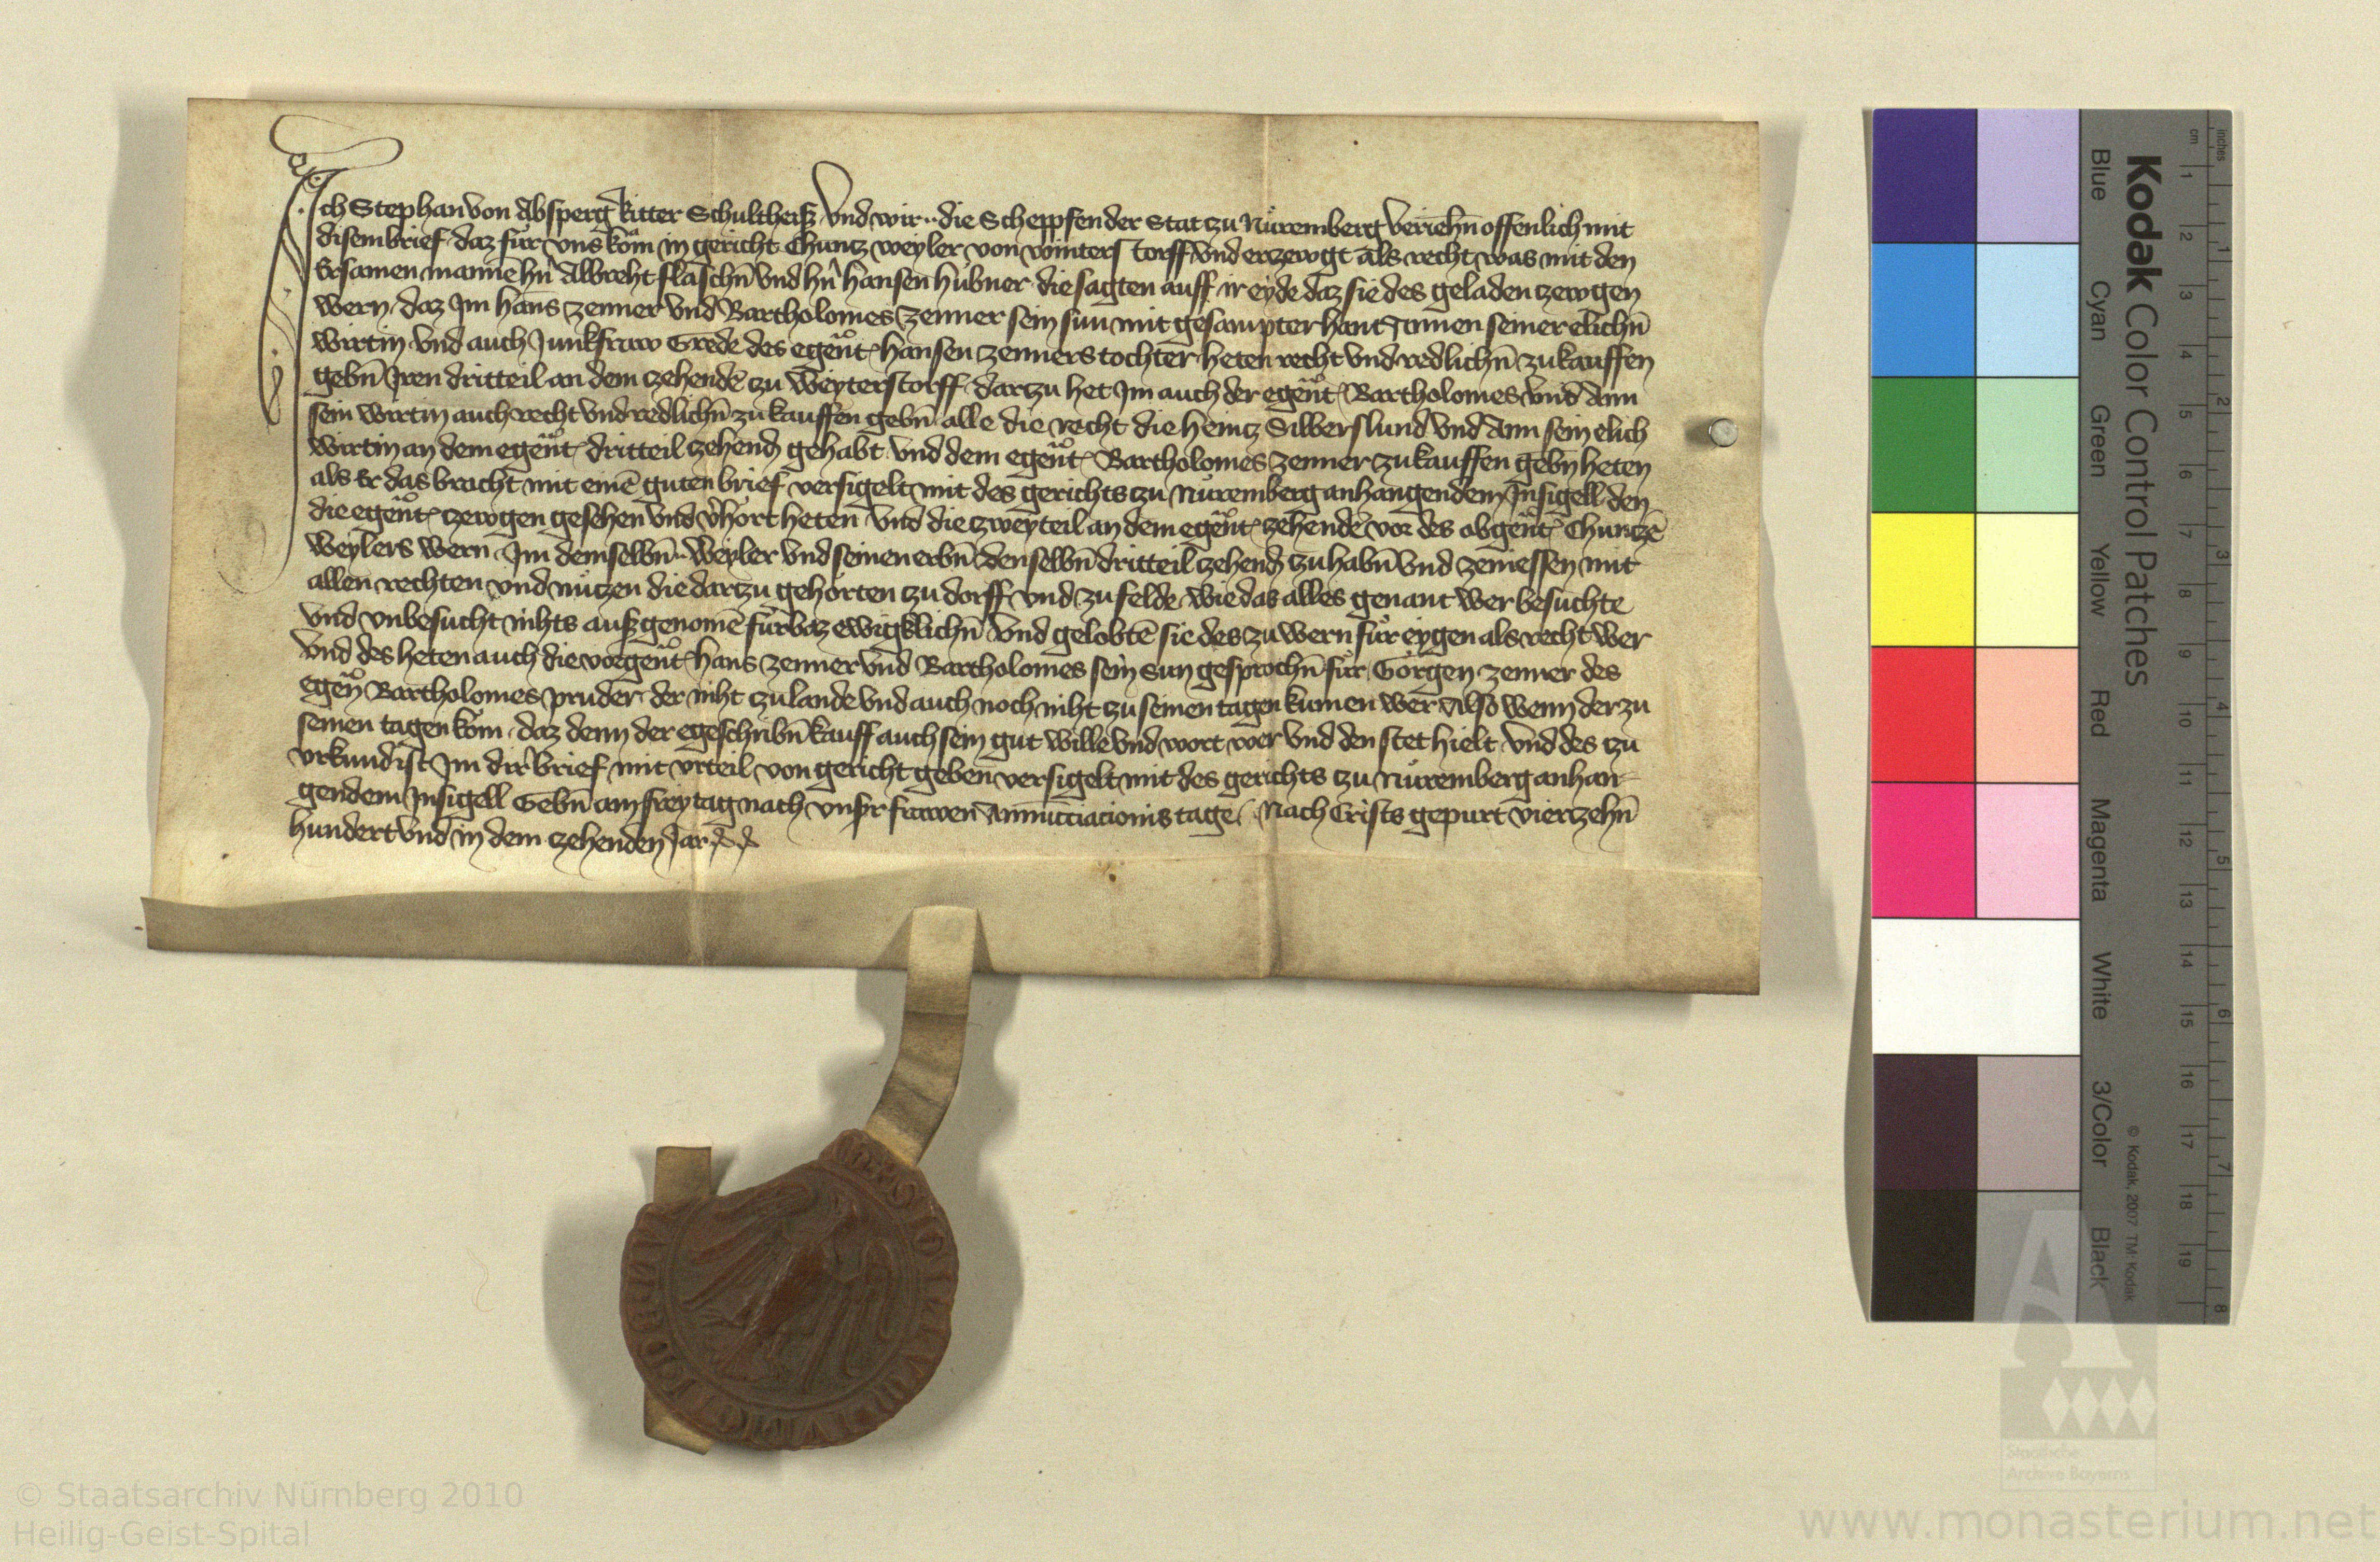 Ich Stephan von Absperg Ritter Schultheisz vnd wir ·· die Scheppfen der Stat zu Nuͤremberg veriehn̄ offenlich mit
disem brief daz fuͤr vns kom in gericht Chuntz weyler von winterstorff vnd erzewgt als recht was mit den
Ersamen mannē hn̄ Albreht flaschn̄ vnd hn̄ hansen huͤbner die sagten auff ir eyde daz sie des geladen zewgen
wern daz Im hans zenner vnd Bartholomes zenner sein sun mit gesampter hant Annen seiner elichn̄
wirtin vnd auch Junkfraw Grede des egen̄t hansen zenners tochter heten recht vnd redlichn̄ zu kauffen
gebn̄ Iren dritteil an dem zehendē zu Weyterstorff dartzu het Im auch der egen̄t Bartholomes vnd Ann
sein wirtin auch recht vnd redlichn̄ zu kauffen gebn̄ alle die recht die heintz Silberslund vnd Ann sein elich
wirtin an dem egen̄t dritteil zehend gehabt vnd dem egen̄t Bartholomes zenner zu kauffen gebn̄ heten
als Er das bracht mit einē guten brief versigelt mit des gerichts zu Nuͤremberg anhangendem Insigell den
die egen̄t zewgen gesehen vnd v̓hort heten vnd die zwey teil an dem egen̄t zehendē vor des obgen̄t Chuntzē
Weylers wern Im demselbn̄ ·· Weyler vnd seinen erbn̄ denselbn̄ dritteil zehend zu habn̄ vnd zeniessen mit
allen rechten vnd nuͤtzen die dartzu gehorten zu dorff vnd zu felde wie das alles genant wer besucht
vnd vnbesucht nihts auszgenomē fuͤrbaz ewigklichn̄ vnd gelobtē sie des zu wern fuͤr eygen als recht wer
vnd des heten auch die vorgen̄t hans zenner vnd Bartholomes sein sun gesprochn̄ fuͤr Goͤrgen zenner des
egen̄ Bartholomes pruder der niht zu lande vnd auch noch niht zu seinen tagen kumen wer Also wenn der zu
seinen tagen kom daz denn der egeschribn̄ kauff auch sein gut wille vnd wort wer vnd den stet hielt vnd des zu
vrkund ist Im dir̓ brief mit vrteil von gericht geben versigelt mit des gerichts zu Nuͤremberg anhan=
gendem Insigell Gebn̄ am freytag nach vnsr̓ frawen Annuncciacionis tage Nach Crists gepurt vierzehn̄
hundert vnd in dem zehenden Jar
Kodak Color Control Patches
Blue Cyan Green Yellow Red Magenta White 3/Color Black
inches 1 2 3 4 5 6 7 8
cm 1 2 3 4 5 6 7 8 9 10 11 12 13 14 15 16 17 18 19
© Kodak, 2007 TM: Kodak
Staatliche
Archive Bayerns
© Staatsarchiv Nürnberg 2010
Heilig-Geist-Spital
www.monasterium.net